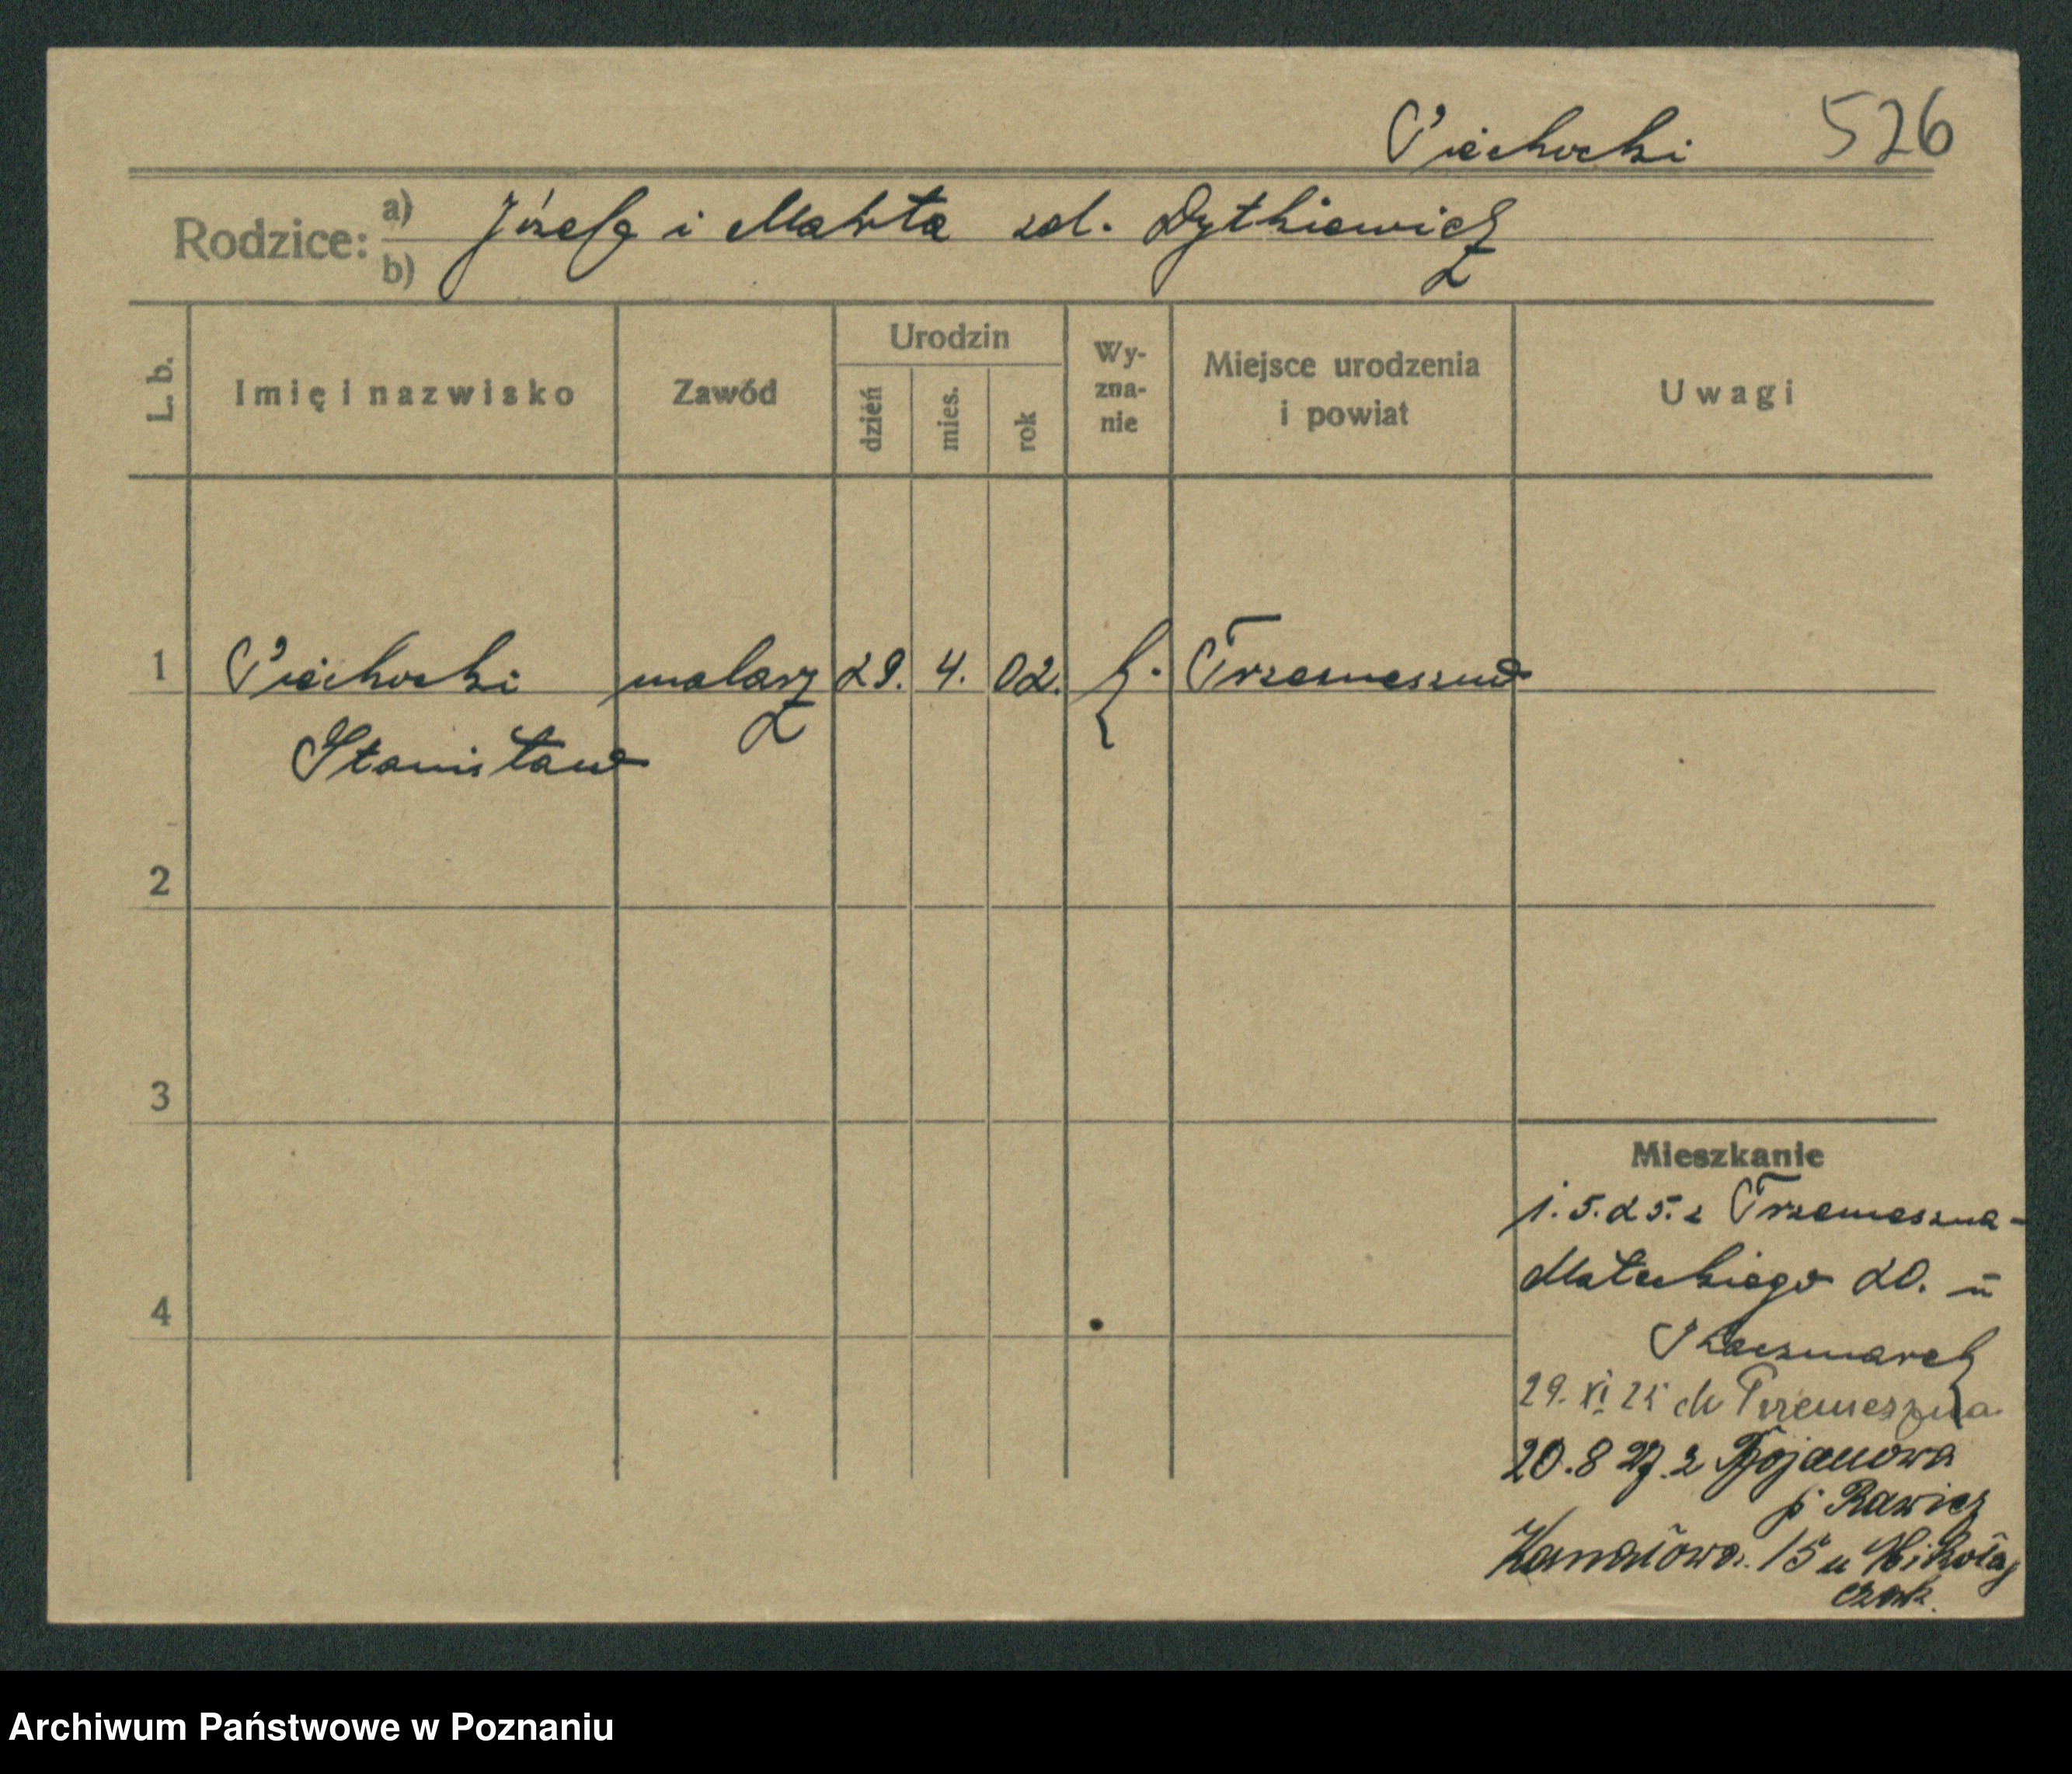 Piechocki 526
Rodzice: a) Józef i Marta zd. Dytkiewicz
b)
L. b. Imię i nazwisko Zawód Urodzin dzień mies. rok Wy-zna-nie Miejsce urodzenia i powiat Uwagi
1 Piechocki malarz 29. 4. 02. k. Trzemeszno
Stanisław
2
3
Mieszkanie
1.5.25. z Trzemeszna-
Mateckiego 20. u
Kaczmarek
4
29. XI 25 do Trzemeszna
20.8 27. z Bojanowa
p. Rawicz
Kanałowa 15 u Mikołaj
czak.
Archiwum Państwowe w Poznaniu